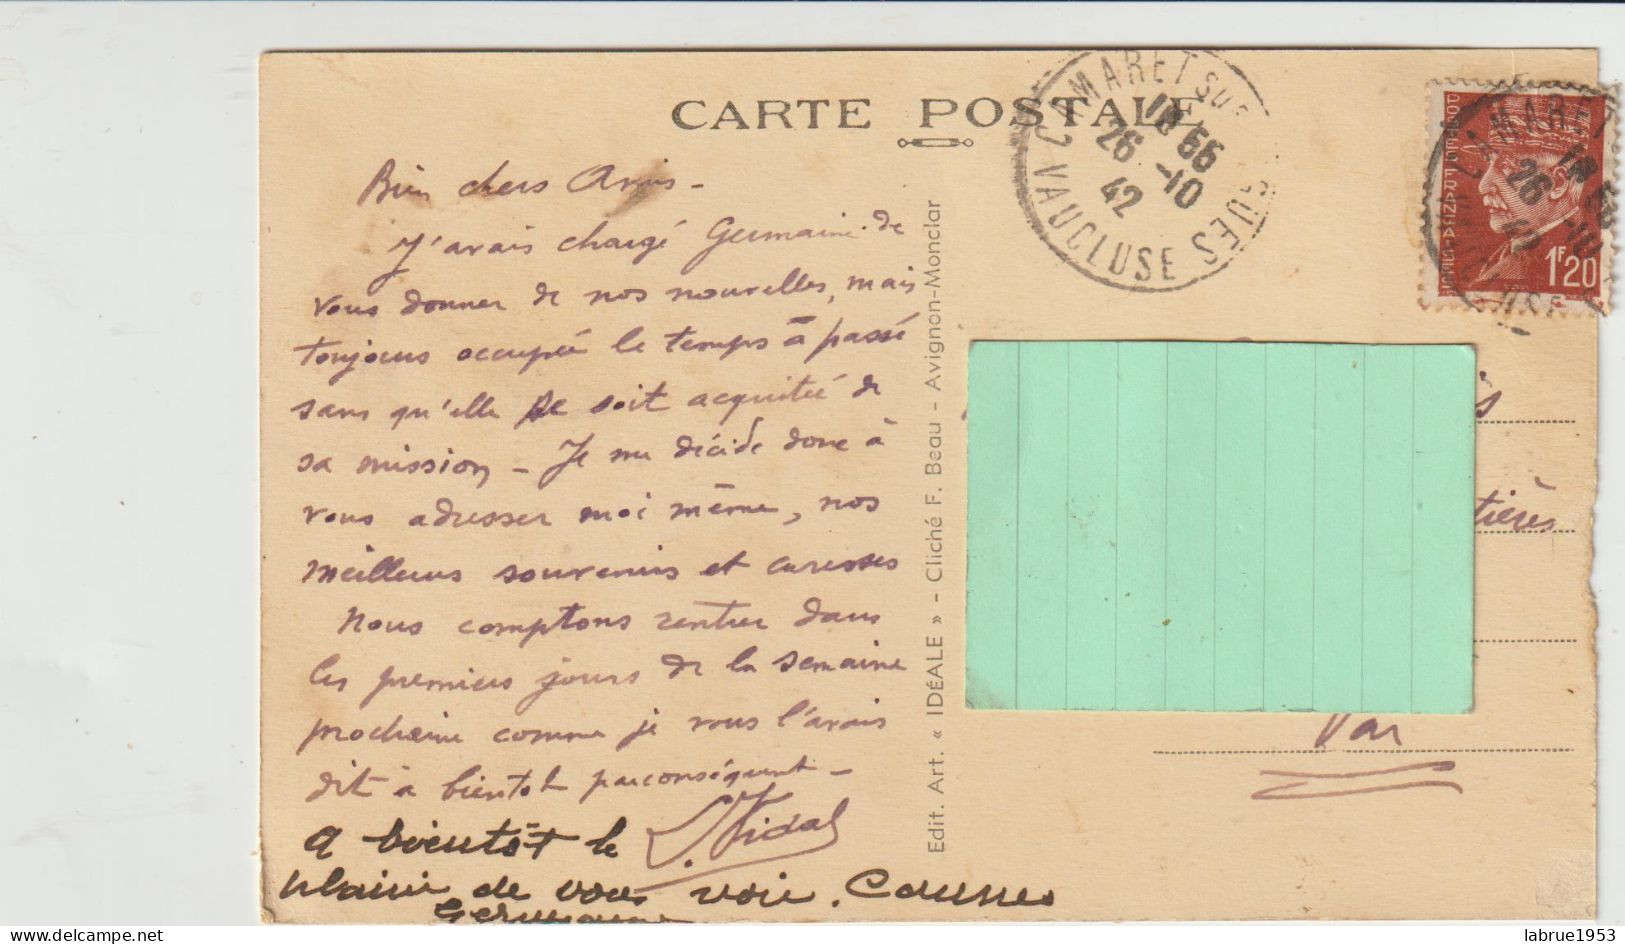 CARTE POSTALE
Bien chers Amis -
J'avais chargé Germaine de
vous donner de nos nouvelles, mais
toujours occupée le temps à passé
sans qu'elle se soit acquitée de
sa mission - Je me décide donc à
vous adresser moi même, nos
meilleurs souvenirs et caresses
Nous comptons rentrer dans
les premiers jours de la semaine
prochaine comme je vous l'avais
dit à bientot parconséquent -
Vidal
A bientôt le
plaisir de vous voir.
Germaine
Edit. Art. « IDÉALE » - Cliché F. Beau - Avignon-Monclar
CAMARET SUR
VAUCLUSE
26 -10
42
POSTES FRANÇAISES
1F20
CAMARET
26 -10
42
tières
Var
www.delcampe.net
labrue1953